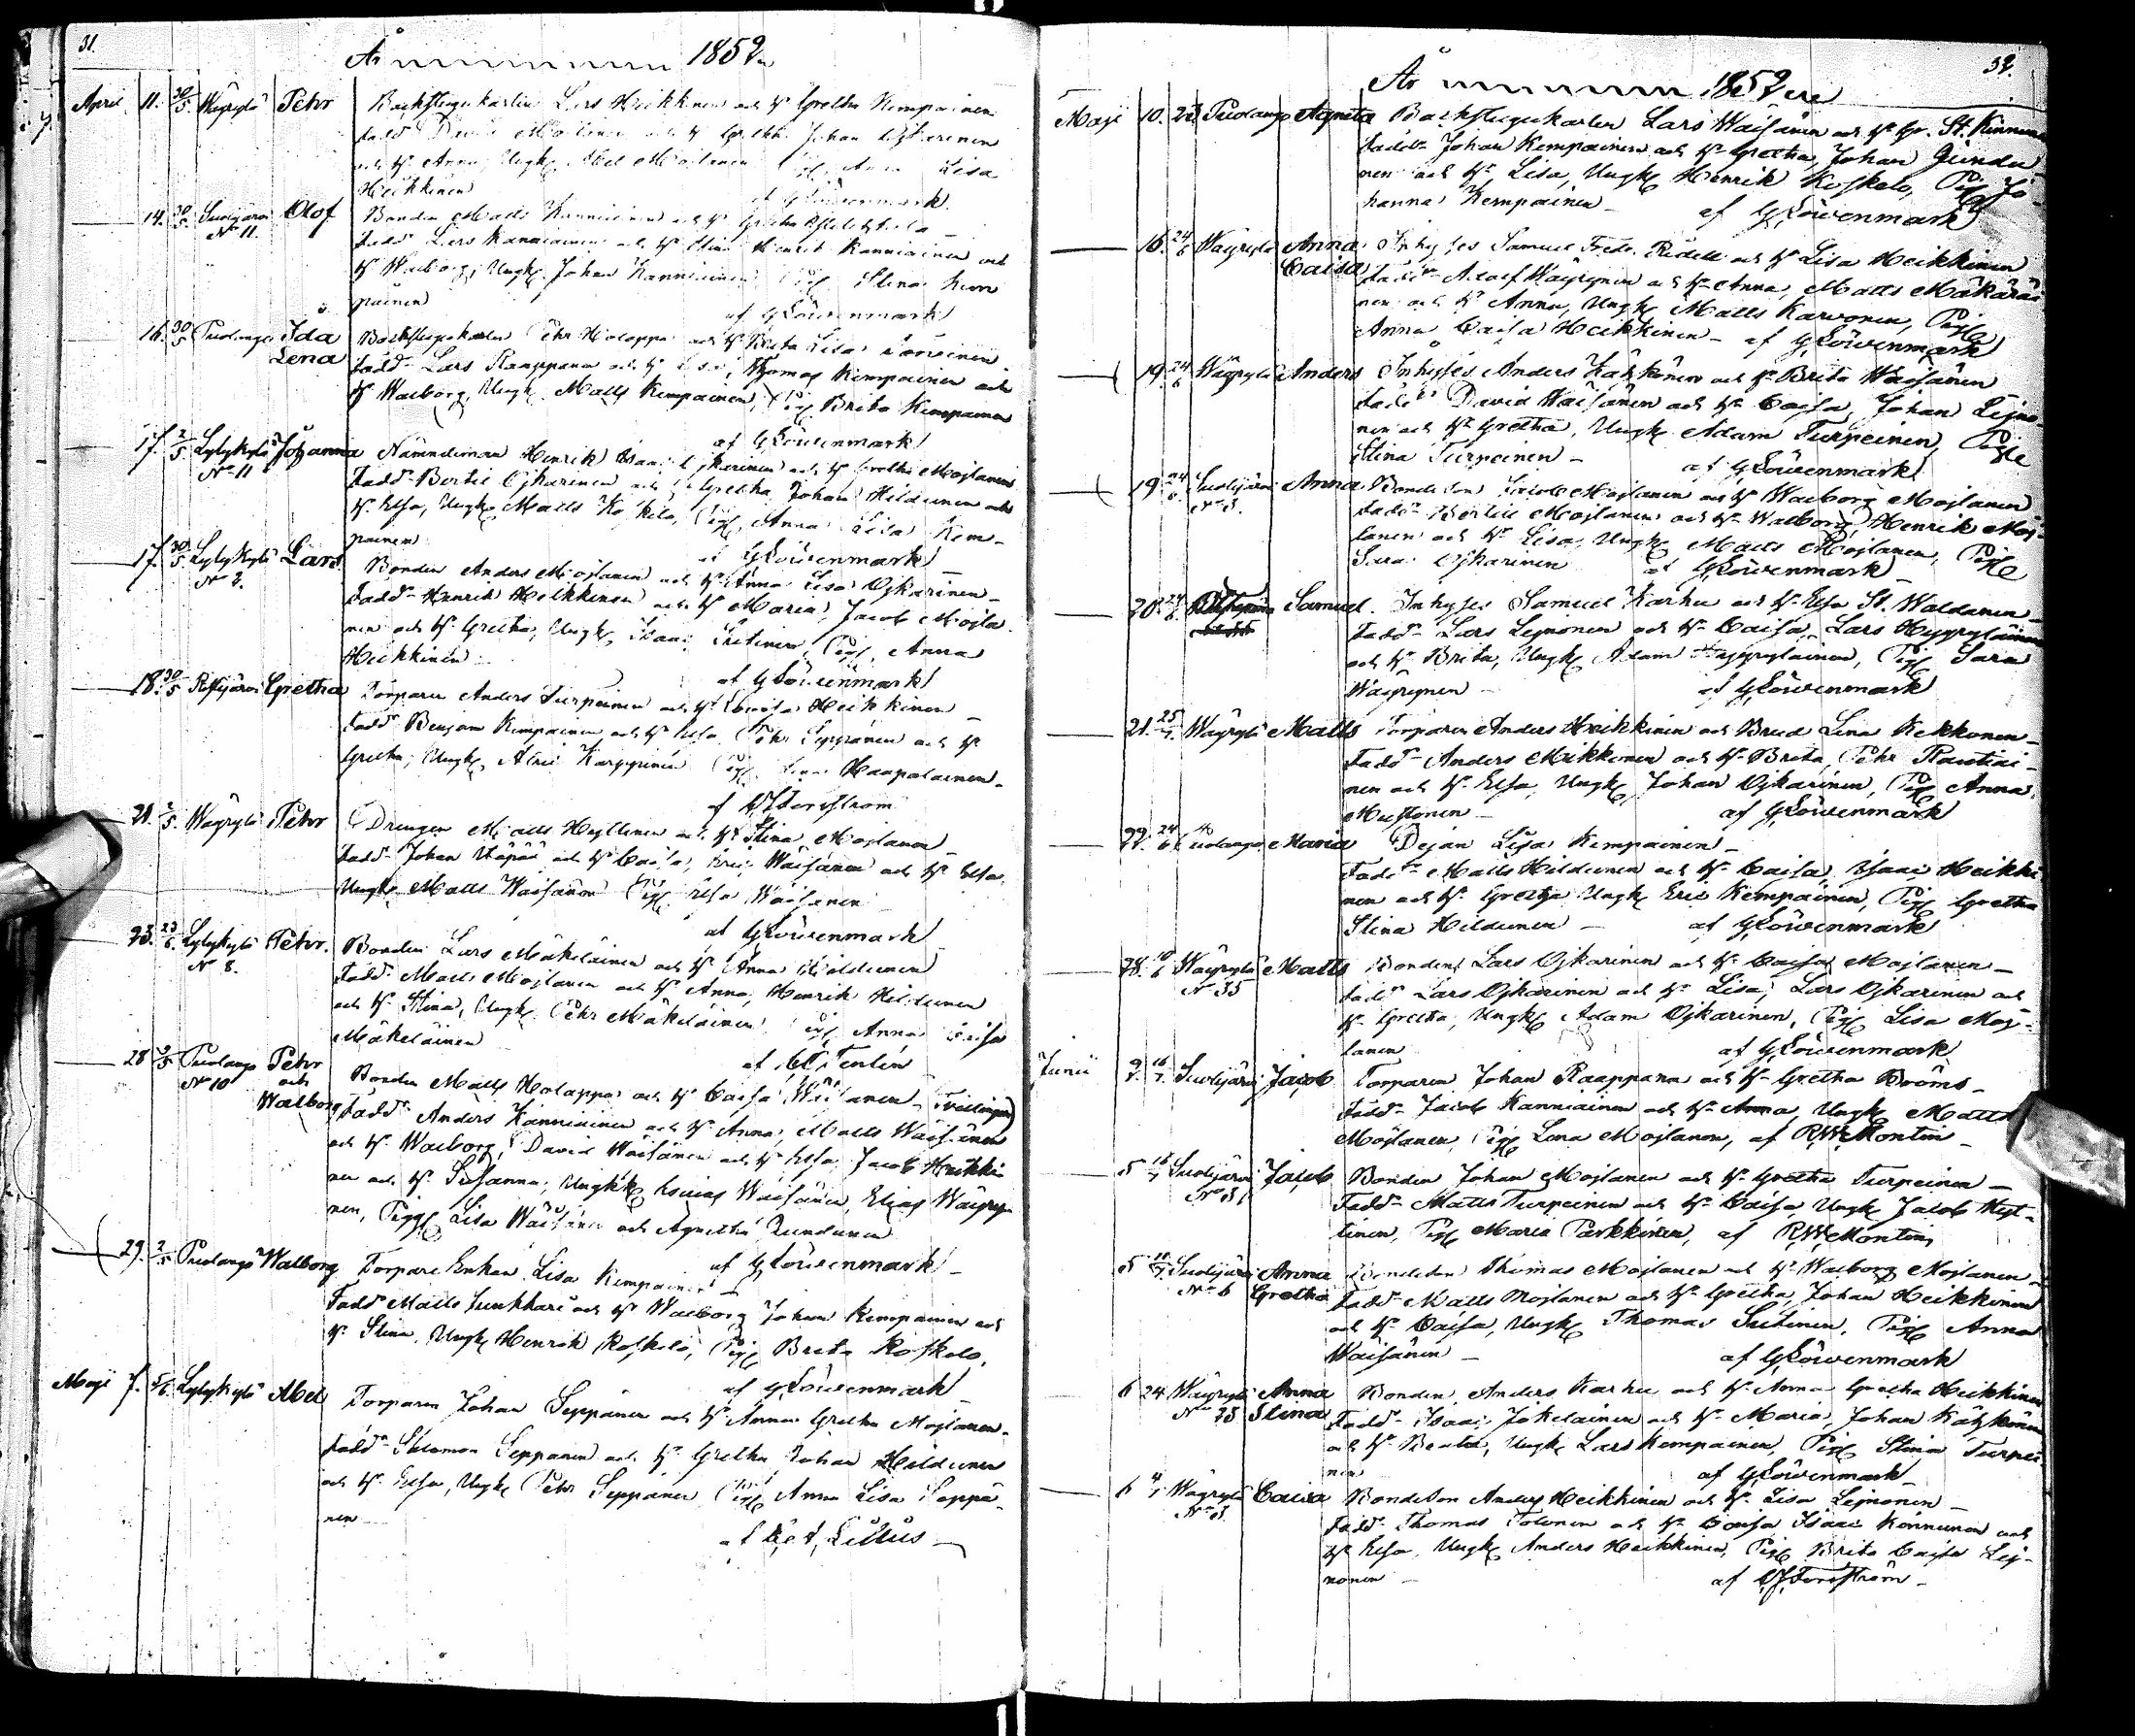 31.
År 1852
April 11. 30/5. Wäyrylä Pehr Backstugukarlen Lars Heikkinen och h. Gretha Kempainen
Fadd. och h. Gretha Johan Ojkarinen
och h. Anna, Ungk. Abel Mojlanen Pig. Anna Lisa
Heikkinen af GLöwenmark.
14. 30/5. Suolijärvi Olof Bonden Matts Kanniainen och h. Gretha
No 11.
Fadd. Lars Kanniainen och h. Stina Henrik Kanniainen och
h. Walborg, Ungk. Johan Kanniainen Pig. Stina Kem
painen af GLöwenmark
16. 30/5 Puolango Ida Lena Backstugukarlen Pehr Holappa och h. Brita Lisa
Fadd. Lars Raappana och h. Lisa, Thomas Kempainen och
h. Walborg, Ungk. Matts Kempainen, Pig. Brita Kempainen
af GLöwenmark
17. 2/5 Lylykylä Johanna Nämndeman Henrik Isaac Ojkarinen och h. Gretha Mojlanen
No 11
Fadd. Bertil Ojkarinen och h. Gretha Johan Hildunen och
h. Elsa, Ungk. Matts Koskelo, Pig. Anna Lisa Kem-
painen af GLöwenmark
17. 30/5 Lylykylä Lars Bonden Anders Mojlanen och h. Anna Lisa Ojkarinen -
No 2.
Fadd. Henrik Heikkinen och h. Maria, Jacob Mojla
nen och h. Gretha, Ungk. Isaac Pig. Anna
Heikkinen af GLöwenmark
18. 30/5 Gretha Torparen Anders Turpeinen och h. Brita Heikkinen -
Fadd. Benjam Kempainen och h. Elsa Pehr Seppänen och h.
Gretha, Ungk. Karppinen Pig. Haapalainen.
af
21. 2/5. Wäyrylä Pehr Drengen Matts Hyttinen och h. Stina Mojlanen
Fadd. Johan och h. Caisa, Eric Wäisänen och h. Elsa,
Ungk. Matts Wäisänen Pig. Elsa Wäisänen
af GLöwenmark
23. 23/6. Lylykylä Pehr. Bonden Lars Mäkeläinen och h. Anna Hildunen
No 8.
Fadd. Matts Mojlanen och h. Anna, Henrik Hildunen
och h. Stina, Ungk. Pehr Mäkeläinen Pig. Anna Caisa
Mäkeläinen af
28 2/5 Puolango Pehr och Walborg Bonden Matts Holappa och h. Caisa Wäisänen - (Tvillingar)
No 10
Fadd. Anders Kanniainen och h. Anna, Matts Wäisänen
och h. Walborg, David Wäisänen och h. Elsa, Jacob Heikki
nen och h. Susanna, Ungkk. Esaias Wäisänen, Elias Wäyry
nen, Pigg. Lisa Wäisänen och Agnetha
af GLöwenmark -
29. 2/5 Puolango Walborg Torpare Enkan Lisa Kempainen -
Fadd. Matts Junkkari och h. Walborg Johan Kempainen och
h. Stina, Ungk. Henrik Koskelo, Pig. Brita Koskelo,
af GLöwenmark
Maji 7. 5/6. Lylykylä Abel Torparen Johan Seppänen och h. Anna Gretha Mojlanen.
Fadd. Salomon Seppänen och h. Gretha, Johan Hildunen
och h. Elsa, Ungk. Pehr Seppänen Pig. Anna Lisa Seppä-
nen
32.
År 1852
Maji 10. 23 Puolango Agneta Backstugukarlen Lars Wäisänen och h. St. Kinnunen
Fadd. Johan Kempainen och h. Gretha, Johan
nen och h. Lisa, Ungk. Henrik Koskelo, Pig. Jo-
hanna Kempainen - af GLöwenmark
16. 24/6 Wäyrylä Anna Caisa Inhyses Samuel Fredr. och h. Lisa Heikkinen
Fadd. Adolf Wäyrynen och h. Anna, Matts Mäkäräi
nen och h. Anna, Ungk. Matts Karvonen, Pig.
Anna Caisa Heikkinen - af GLöwenmark
19. 24/6 Wäyrylä Anders Inhyses Anders Kähkönen och h. Brita Wäisänen
Fadd. David Wäisänen och h. Caisa, Johan Lejno-
nen och h. Gretha, Ungk. Adam Turpeinen, Pig.
Stina Turpeinen - af GLöwenmark
19. 24/6 Suolijärvi Anna Bondeson Jacob Mojlanen och h. Walborg Mojlanen
Fadd. Bertil Mojlanen och h. Walborg, Henrik Moj-
lanen och h. Lisa, Ungk. Matts Mojlanen, Pig.
Sara Ojkarinen af GLöwenmark
20. 24/6. Samuel. Inhyses Samuel Karhu och h. Elsa St. Waldanen
Fadd. Lars Lejnonen och h. Caisa, Lars Hyyryläinen
och h. Brita, Ungk. Adam Hyyryläinen, Pig. Sara
Wäyrynen - af GLöwenmark
21. 25/7. Wäyrylä Matts Torparen Anders Heikkinen och Brud Lena Kekkonen -
Fadd. Anders Mikkonen och h. Brita, Pehr Rautiai-
nen och h. Elsa, Ungk. Johan Ojkarinen, Pig. Anna
Mustonen - af GLöwenmark
22. 24/6 Puolango Maria Pejan Lisa Kempainen -
Fadd. Matts Hildunen och h. Caisa, Isaac Heikki
nen och h. Gretha Ungk. Eric Kempainen, Pig. Gretha
Stina Hildunen - af GLöwenmark
28. 10/6 Wäyrylä Matts Bonden Lars Ojkarinen och h. Caisa Mojlanen -
No 35
Fadd. Lars Ojkarinen och h. Lisa, Lars Ojkarinen och
h. Gretha, Ungk. Adam Ojkarinen, Pig. Lisa Moj-
lanen af GLöwenmark
Junii Suolijärvi Jacob Torparen Johan Raappana och h. Gretha Broms -
Fadd. Jacob Kanniainen och h. Anna, Ungk. Matts
Mojlanen, Pig. Lena Mojlanen, af RWMontin -
5 Suolijärvi Jacob Bonden Johan Mojlanen och h. Gretha Turpeinen -
Fadd. Matts Turpeinen och h. Caisa, Ungk. Jacob Hyt-
tinen, Pig. Maria Parkkinen, af RWMontin
5 Suolijärvi Anna Gretha Bondeson Thomas Mojlanen och h. Walborg Mojlanen -
No 6
Fadd. Matts Mojlanen och h. Gretha, Johan Heikkinen
och h. Caisa, Ungk. Thomas Pig. Anna
Wäisänen - af GLöwenmark
6 24 Wäyrylä Anna Stina Bonden Anders Karhu och h. Anna Gretha Heikkinen
Fadd. Isaac Jokelainen och h. Maria, Johan Kähkönen
och h. Beata, Ungk. Lars Kempainen, Pig. Stina Turpei
nen af GLöwenmark
6 4/7 Wäyrylä Caisa Bondeson Anders Heikkinen och h. Lisa Lejnonen -
Fadd. Thomas Tolonen och h. Caisa Isaac Kinnunen och
h. Elsa, Ungk. Anders Heikkinen, Pig. Brita Caisa Lej-
nonen - af